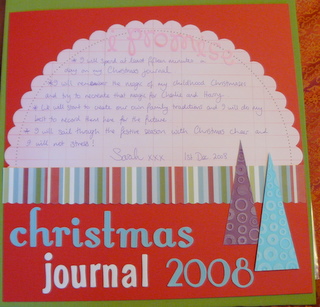 I Promise
* I will spend at least fifteen minutes a
day on my Christmas journal
* I will remember the magic of my childhood Christmases
and try to recreate that magic for and Henry.
* We will start to create our own family traditions and I will do my
best to record them here for the future
* I will sail through the festive season with Christmas cheer and
I will not stress!
Sarah xxx 1st Dec 2008
christmas
journal 2008